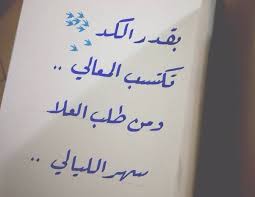 بقدر الكد
تكتسب المعالي ..
ومن طلب العلا
سهر الليالي ..